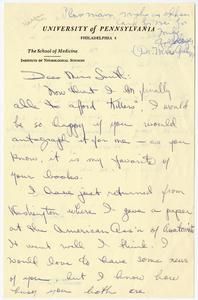 UNIVERSITY of PENNSYLVANIA
PHILADELPHIA 4
The School of Medicine
INSTITUTE OF NEUROLOGICAL SCIENCES
Dear Miss Smith:
Now that I do finally
able to afford "Killers" I would
be so happy if you would
autograph it for me — as you
know, it is my favorite of
your books.
I have just returned from
Washington where I gave a paper
at the American Ass'n of Anatomists
It went well I think. I
would love to have some news
of you, but I know how
busy you both are